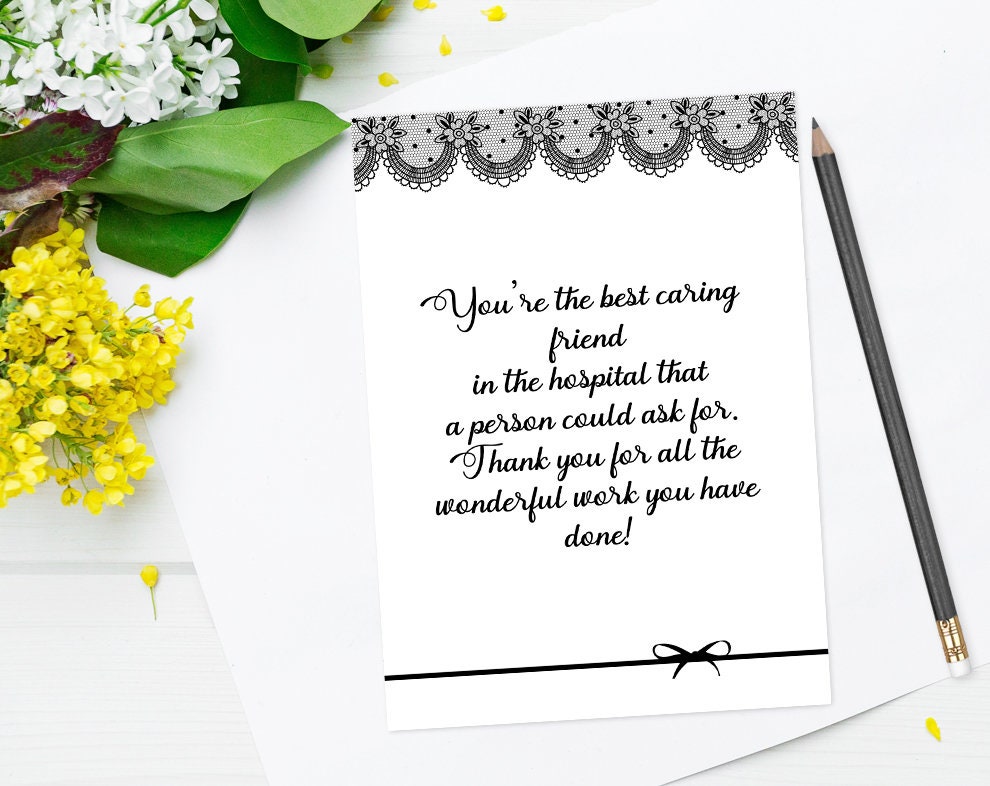 You're the best caring
friend
in the hospital that
a person could ask for.
Thank you for all the
wonderful work you have
done!